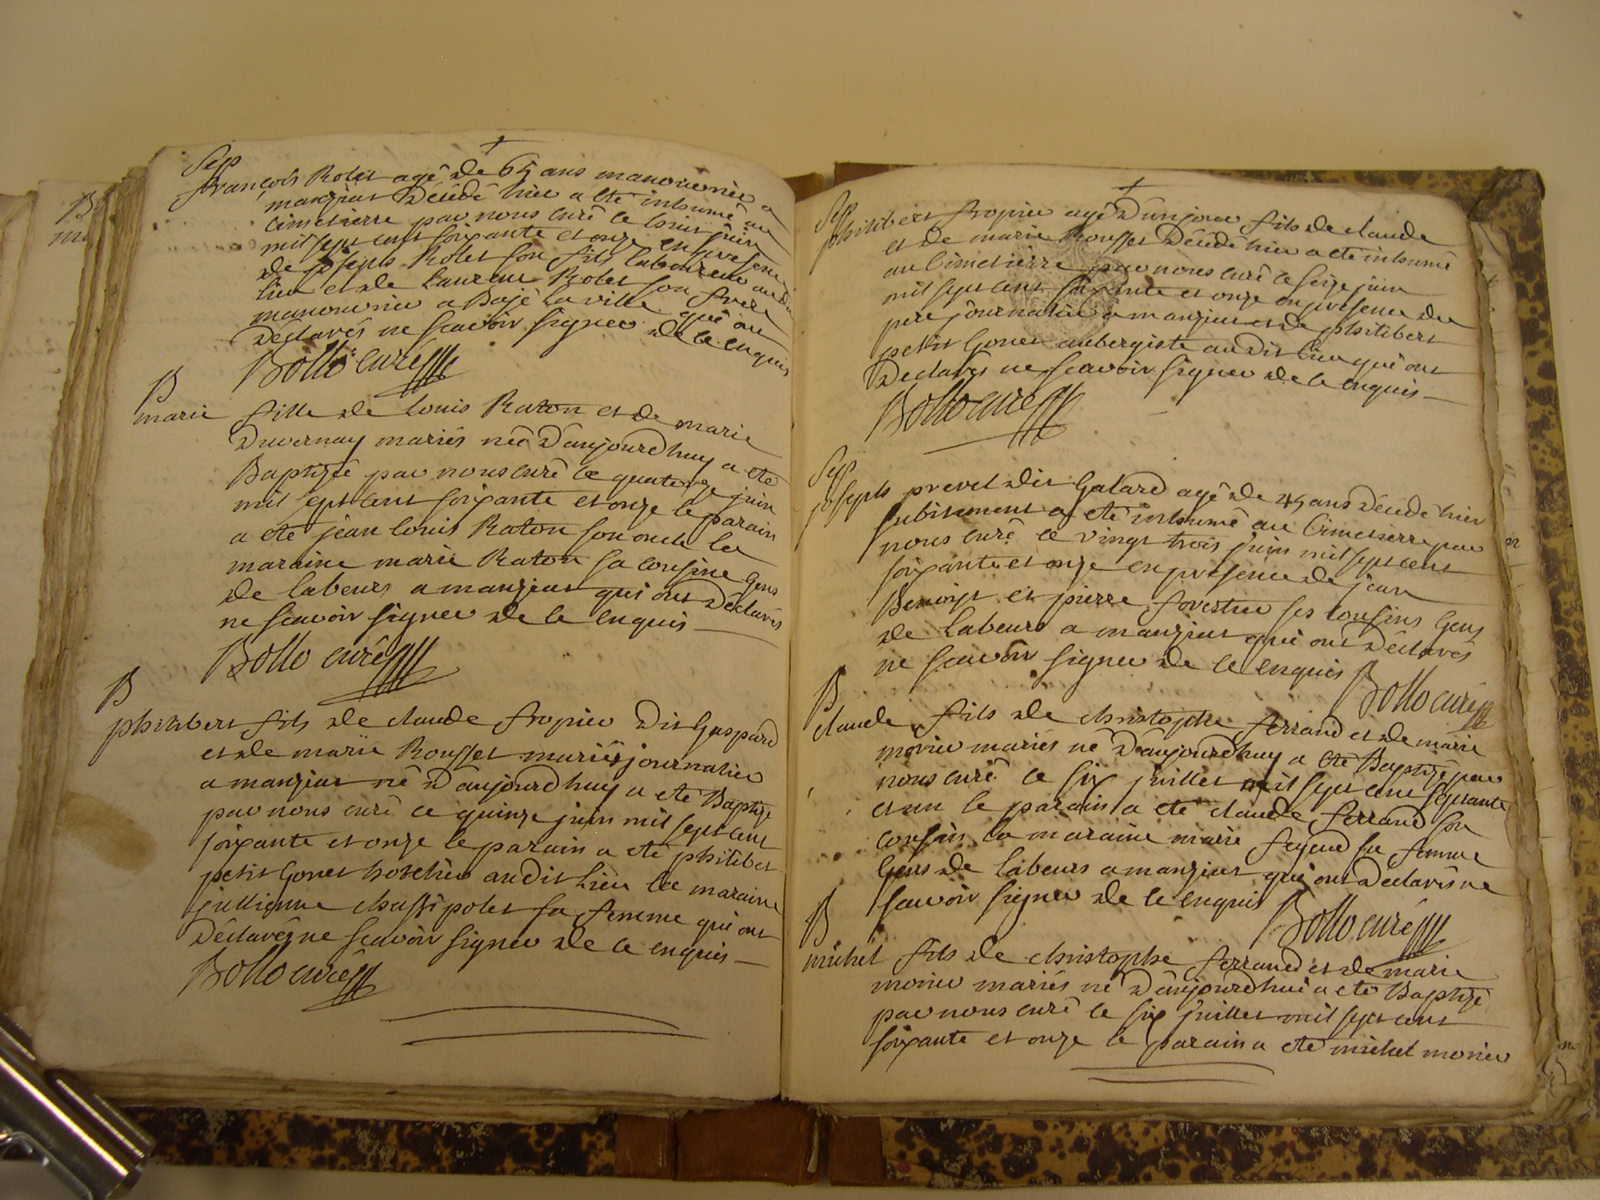 Sep
françois Rolet agé de 65 ans manouvrier a
manziat décédé hier a eté inhumé au
Cimetierre par nous curé le
mil sept cent soixante et onze en presence
de joseph Rolet son fils laboureur audit
lieu et de Laurent Rolet son frere
manouvrier a Bagé la ville qui ont
déclarés ne scavoir signer de ce enquis
Bollo curé
B
marie fille de louis Raton et de marie
duvernay mariés née d'aujourdhuy a eté
Baptizée par nous curé le quatorze juin
mil sept cent soixante et onze le parain
a eté jean louis Raton son oncle la
maraine marie Raton sa cousine gens
de labeurs a manziat qui ont déclarés
ne scavoir signer de ce enquis
Bollo curé
B
philibert fils de claude fropier dit Gaspard
et de marie Rousset mariés journalier
a manziat né d'aujourdhuy a eté Baptizé
par nous curé ce quinze juin mil sept cent
soixante et onze le parain a eté philibert
petit Gonet hotelier audit lieu la maraine
jullienne chassipolet sa femme qui ont
déclarés ne scavoir signer de ce enquis
Bollo curé
Sep
philibert fropier agé d'un jour fils de claude
et de marie Rousset décédé hier a eté inhumé
au Cimetierre par nous curé ce seize juin
mil sept cent soixante et onze en presence du
pere journalier a manziat et de philibert
petit Gonet aubergiste audit lieu qui ont
déclarés ne scavoir signer de ce enquis
Bollo curé
Sep
joseph prevel dit Galard agé de 45 ans décédé hier
subitement a eté inhumé au Cimetierre par
nous curé ce vingt trois juin mil sept cent
soixante et onze en presence de jean
Benoist et pierre forestier ses cousins gens
de labeurs a manziat qui ont déclarés
ne scavoir signer de ce enquis Bollo curé
B
claude fils de christophe ferrand et de marie
monier mariés né d'aujourdhuy a eté Baptizé par
nous curé ce six juillet mil sept cent septante
et un le parain a eté claude ferrand son
cousin la maraine marie feyeud sa femme
gens de labeurs a manziat qui ont déclarés ne
scavoir signer de ce enquis Bollo curé
B
michel fils de christophe ferrand et de marie
monier mariés né d'aujourdhui a eté Baptizé
par nous curé le six juillet mil sept cent
soixante et onze le parain a eté michel monier